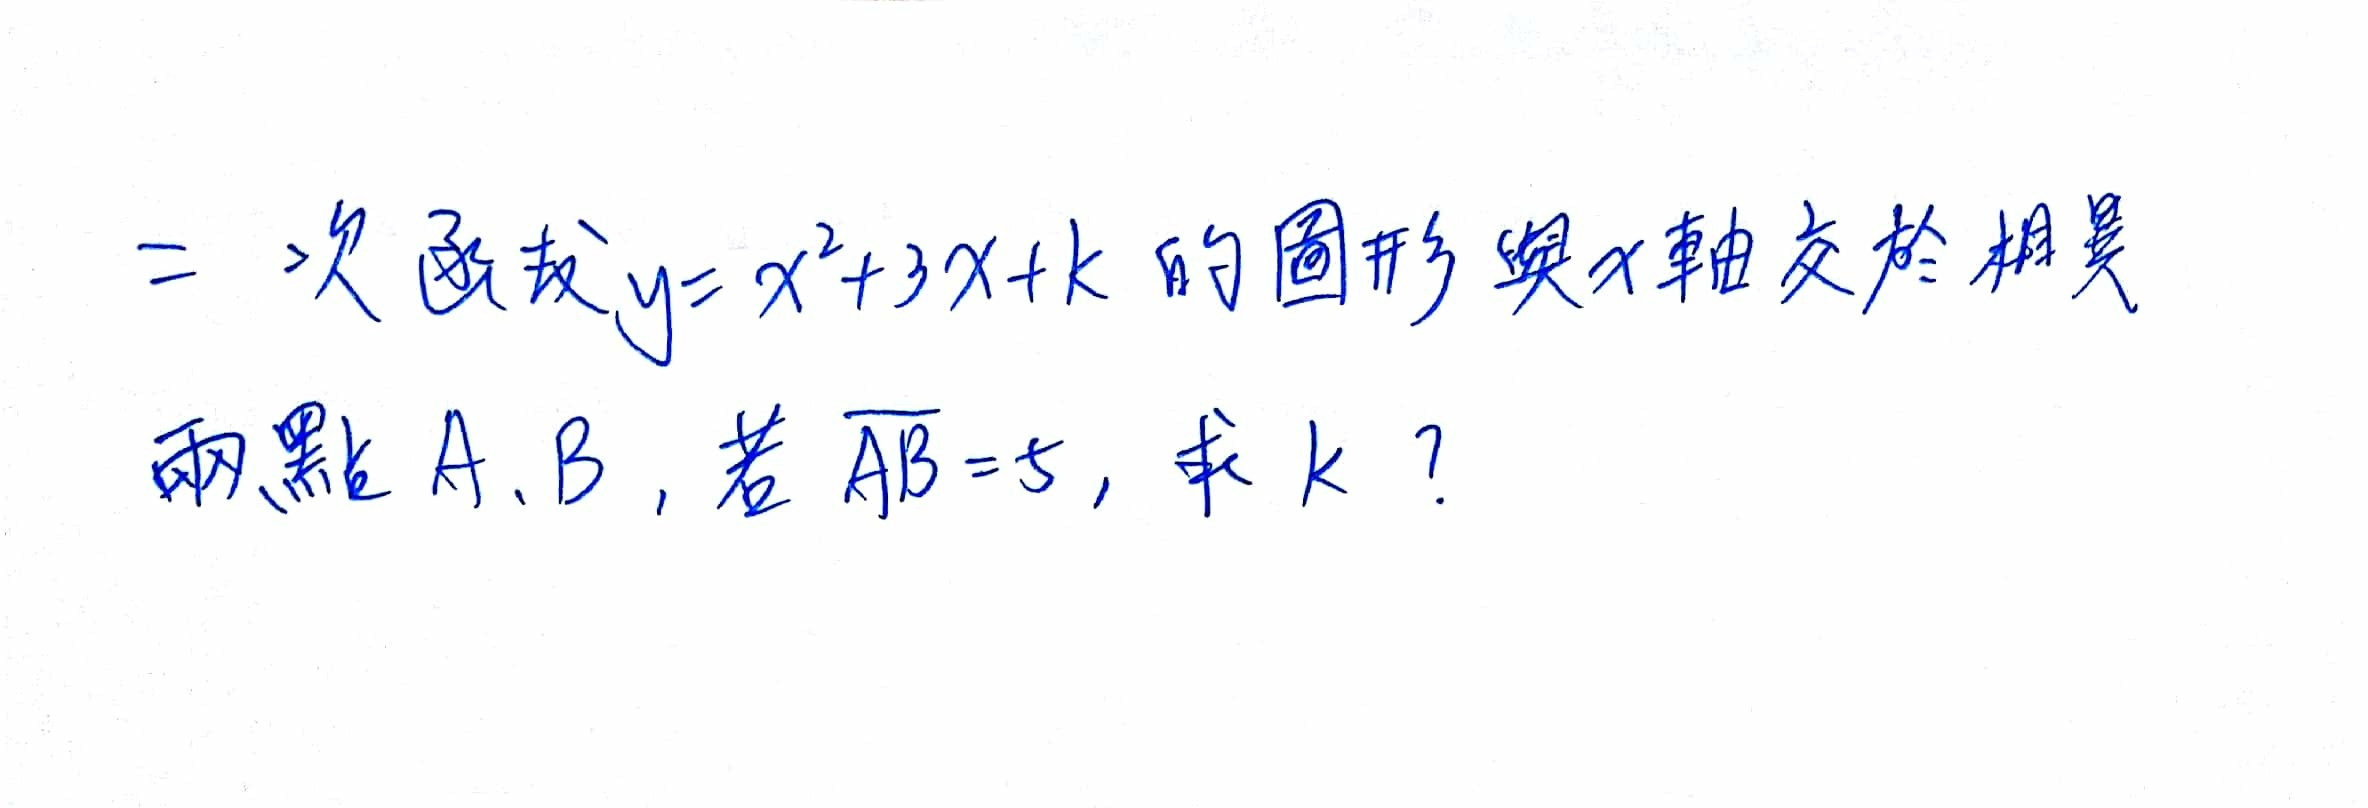 二次函數y=x²+3x+k的圖形與x軸交於相異
兩點A、B,若AB̅=5,求k?